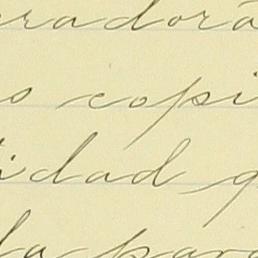 radora
s copi
idad q
la para